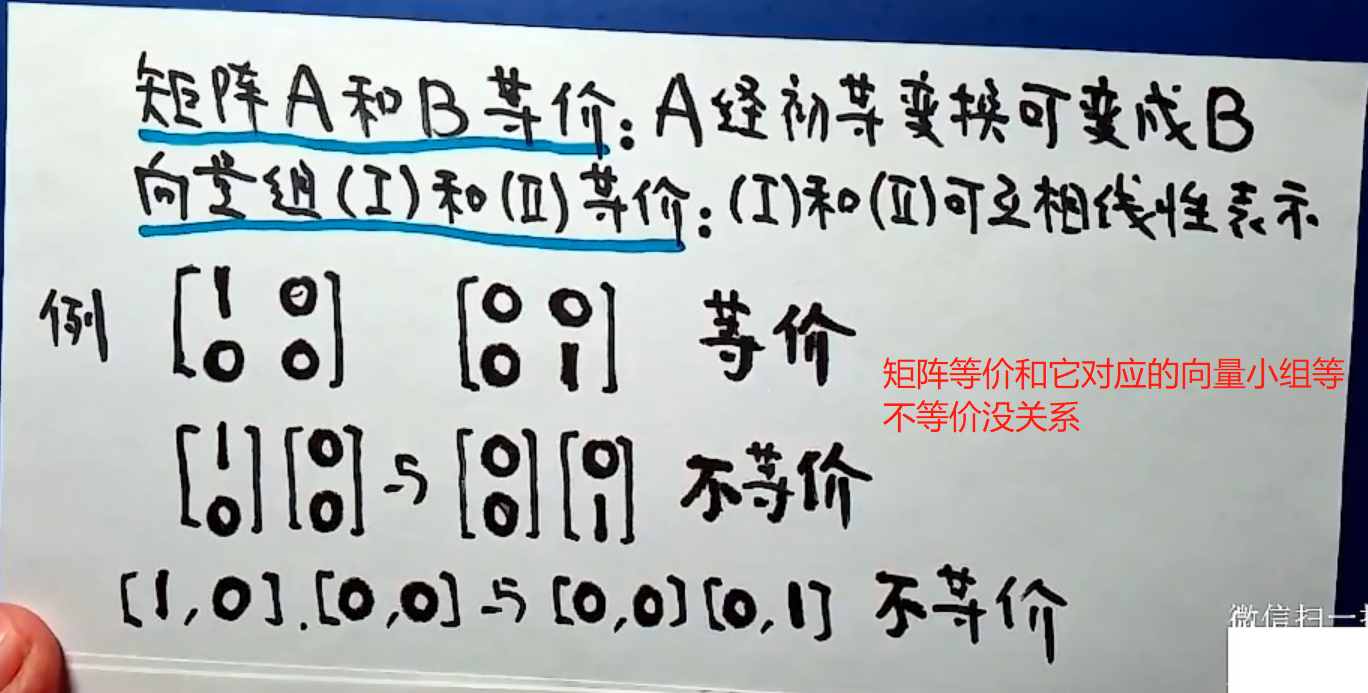 矩阵A和B等价:A经初等变换可变成B
向量组(I)和(II)等价:(I)和(II)可互相线性表示
例 [1 0 [0 0 等价
0 0] 0 1]
矩阵等价和它对应的向量小组等
不等价没关系
[1 [0 与 [0 [0 不等价
0] 0] 0] 1]
[1,0].[0,0]与[0,0][0,1] 不等价
微信扫一